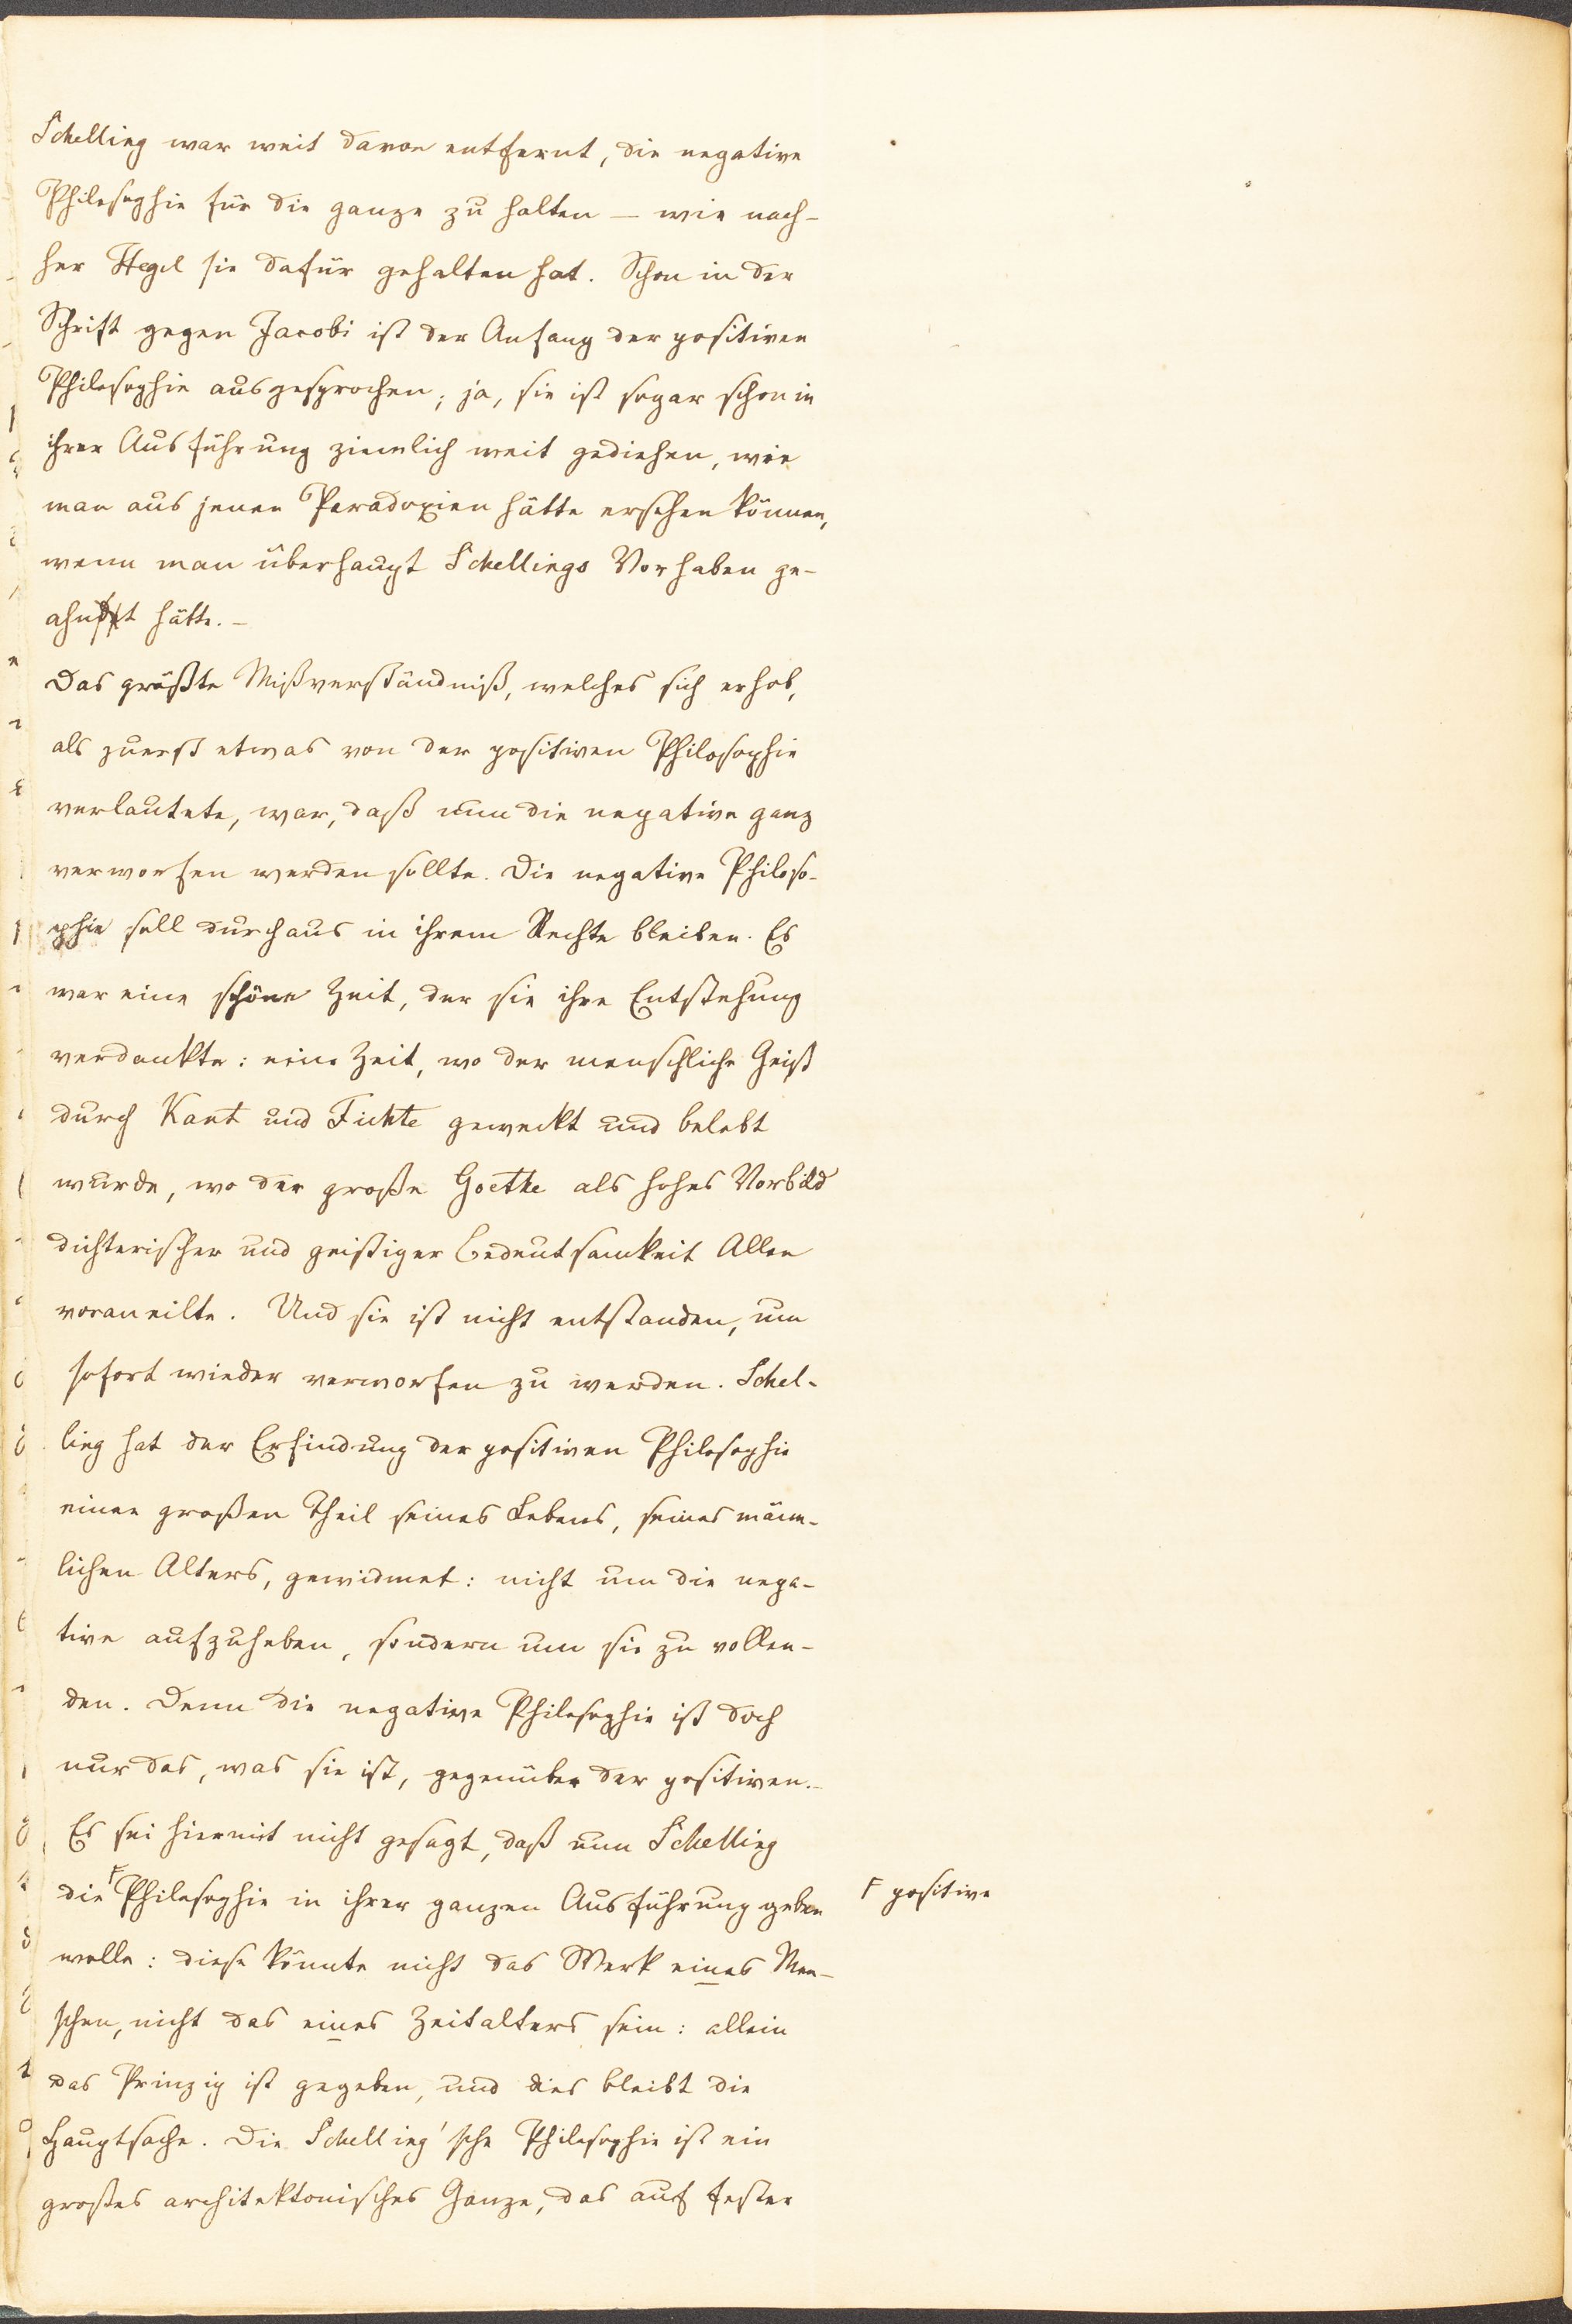 Schelling war weit davon entfernt, die negative
Philosophie für die ganze zu halten — wie nach-
her Hegel sie dafür gehalten hat. Schon in der
Schrift gegen Jacobi ist der Anfang der positiven
Philosophie ausgesprochen; ja, sie ist sogar schon in
ihrer Ausführung ziemlich weit gediehen, wie
man aus jenen Paradoxien hätte ersehen können,
wenn man überhaupt Schellings Vorhaben ge-
ahnt hätte. —
Das größte Mißverständniß, welches sich erhob,
als zuerst etwas von der positiven Philosophie
verlautete, war, daß nun die negative ganz
verworfen werden sollte. Die negative Philoso-
phie soll durchaus in ihrem Rechte bleiben. Es
war eine schöne Zeit, der sie ihre Entstehung
verdankte: eine Zeit, wo der menschliche Geist
durch Kant und Fichte geweckt und belebt
wurde, wo der große Goethe als hohes Vorbild
dichterischer und geistiger Bedeutsamkeit Allen
voraneilte. Und sie ist nicht entstanden, um
sofort wieder verworfen zu werden. Schel-
ling hat der Erfindung der positiven Philosophie
einen großen Theil seines Lebens, seines männ-
lichen Alters, gewidmet: nicht um die nega-
tive aufzuheben, sondern um sie zu vollen-
den. Denn die negative Philosophie ist doch
nur das, was sie ist, gegenüber der positiven. —
Es sei hiermit nicht gesagt, daß nun Schelling
die ⌈ Philosophie in ihrer ganzen Ausführung geben
⌈ positive
wolle: diese könnte nicht das Werk eines Men-
schen, nicht das eines Zeitalters sein: allein
das Prinzip ist gegeben, und dies bleibt die
Hauptsache. Die Schelling'sche Philosophie ist ein
großes architektonisches Ganze, das auf fester